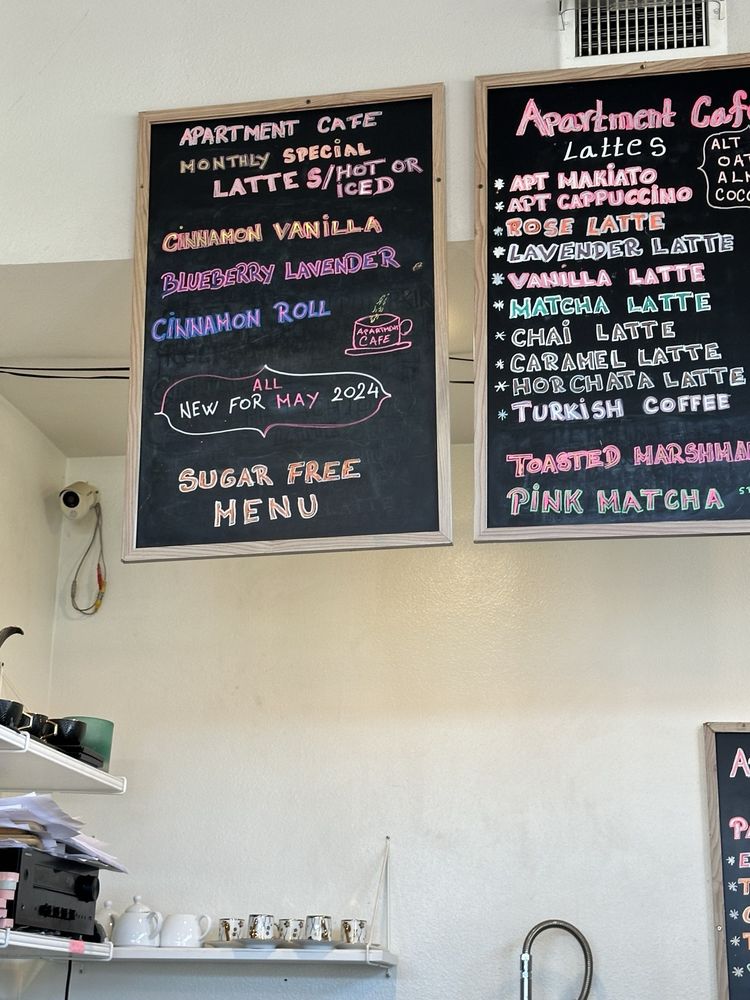 APARTMENT CAFE
MONTHLY SPECIAL
LATTE S/HOT OR
ICED
CINNAMON VANILLA
BLUEBERRY LAVENDER
CINNAMON ROLL
APARTMENT
CAFE
ALL
NEW FOR MAY 2024
SUGAR FREE
MENU
Apartment
Lattes
ALT
* APT MAKIATO
* APT CAPPUCCINO
* ROSE LATTE
* LAVENDER LATTE
* VANILLA LATTE
* MATCHA LATTE
* CHAI LATTE
* CARAMEL LATTE
* HORCHATA LATTE
* TURKISH COFFEE
TOASTED
PINK MATCHA